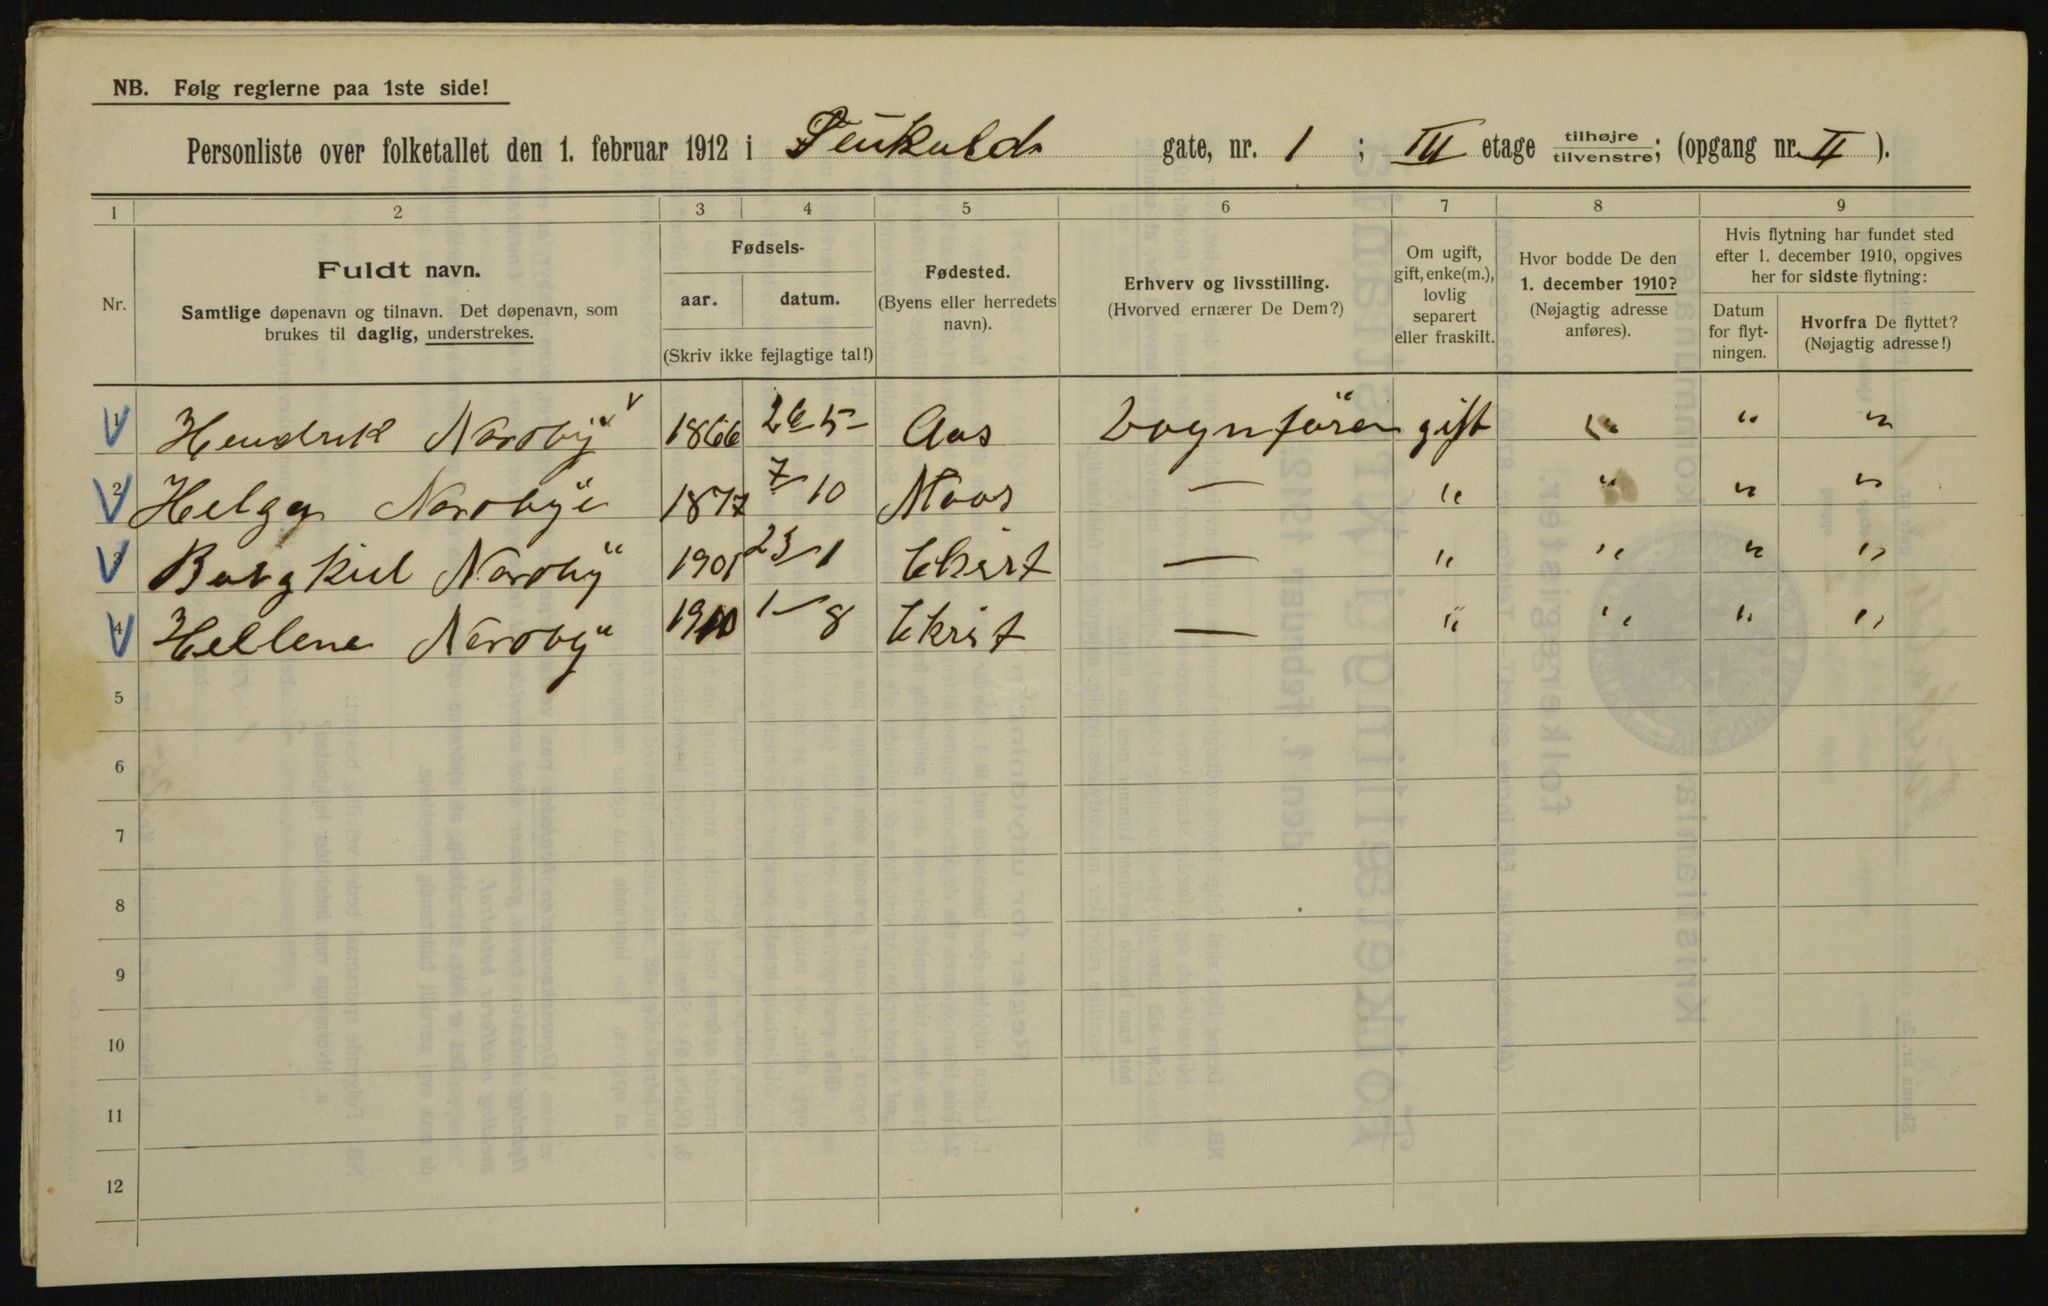 NB. Følg reglerne paa 1ste side!
Personliste over folketallet den 1. februar 1912 i gate, nr. 1 ; III etage tilhøjre tilvenstre; (opgang nr. II ).
1 2 3 4 5 6 7 8 9
Nr.
Fuldt navn.
Samtlige døpenavn og tilnavn. Det døpenavn, som
brukes til daglig, understrekes.
Fødsels-
aar. datum.
(Skriv ikke fejlagtige tal!)
Fødested.
(Byens eller herredets
navn).
Erhverv og livsstilling.
(Hvorved ernærer De Dem?)
Om ugift,
gift, enke(m.),
lovlig
separert
eller fraskilt.
Hvor bodde De den
1. december 1910?
(Nøjagtig adresse
anføres).
Hvis flytning har fundet sted
efter 1. december 1910, opgives
her for sidste flytning:
Datum
for flyt-
ningen.
Hvorfra De flyttet?
(Nøjagtig adresse!)
1 Hendrik Nordby 1866 26 5 Aas Vognförer gift " " "
2 Helga Nordbye 1877 7/10 Moss — " " " "
3 Nordby 1901 23/1 — " " " "
4 Hellene Nordby 1910 1/8 — " " " "
5
6
7
8
9
10
11
12